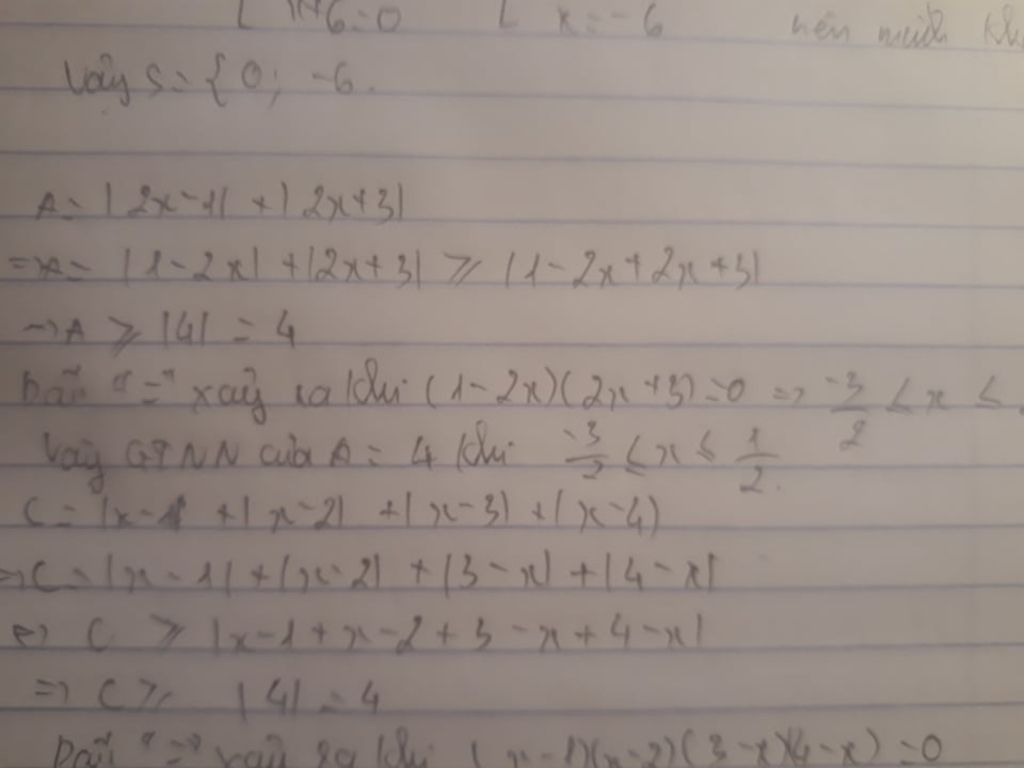 [ x+6=0 [ x=-6 nên mình
Vậy S={0; -6.
A= |2x-1| +| 2x+3|
=>A= |1-2x| +|2x+3| ≥ |1-2x+2x+3|
->A ≥ |4| = 4
Dấu "=" xảy ra khi (1-2x)(2x+3)=0 => -3/2 ≤ x ≤
Vậy GTNN của A= 4 khi -3/2 ≤x≤ 1/2.
C= |x-1| +| x-2| +| x-3| +| x-4|
=>C=|x-1|+|x-2| +|3-x| +|4-x|
=> C ≥ |x-1+x-2+3-x+4-x|
=> C≥ |4| =4
Dấu "=" xảy ra khi (x-1)(x-2)(3-x)(4-x)=0